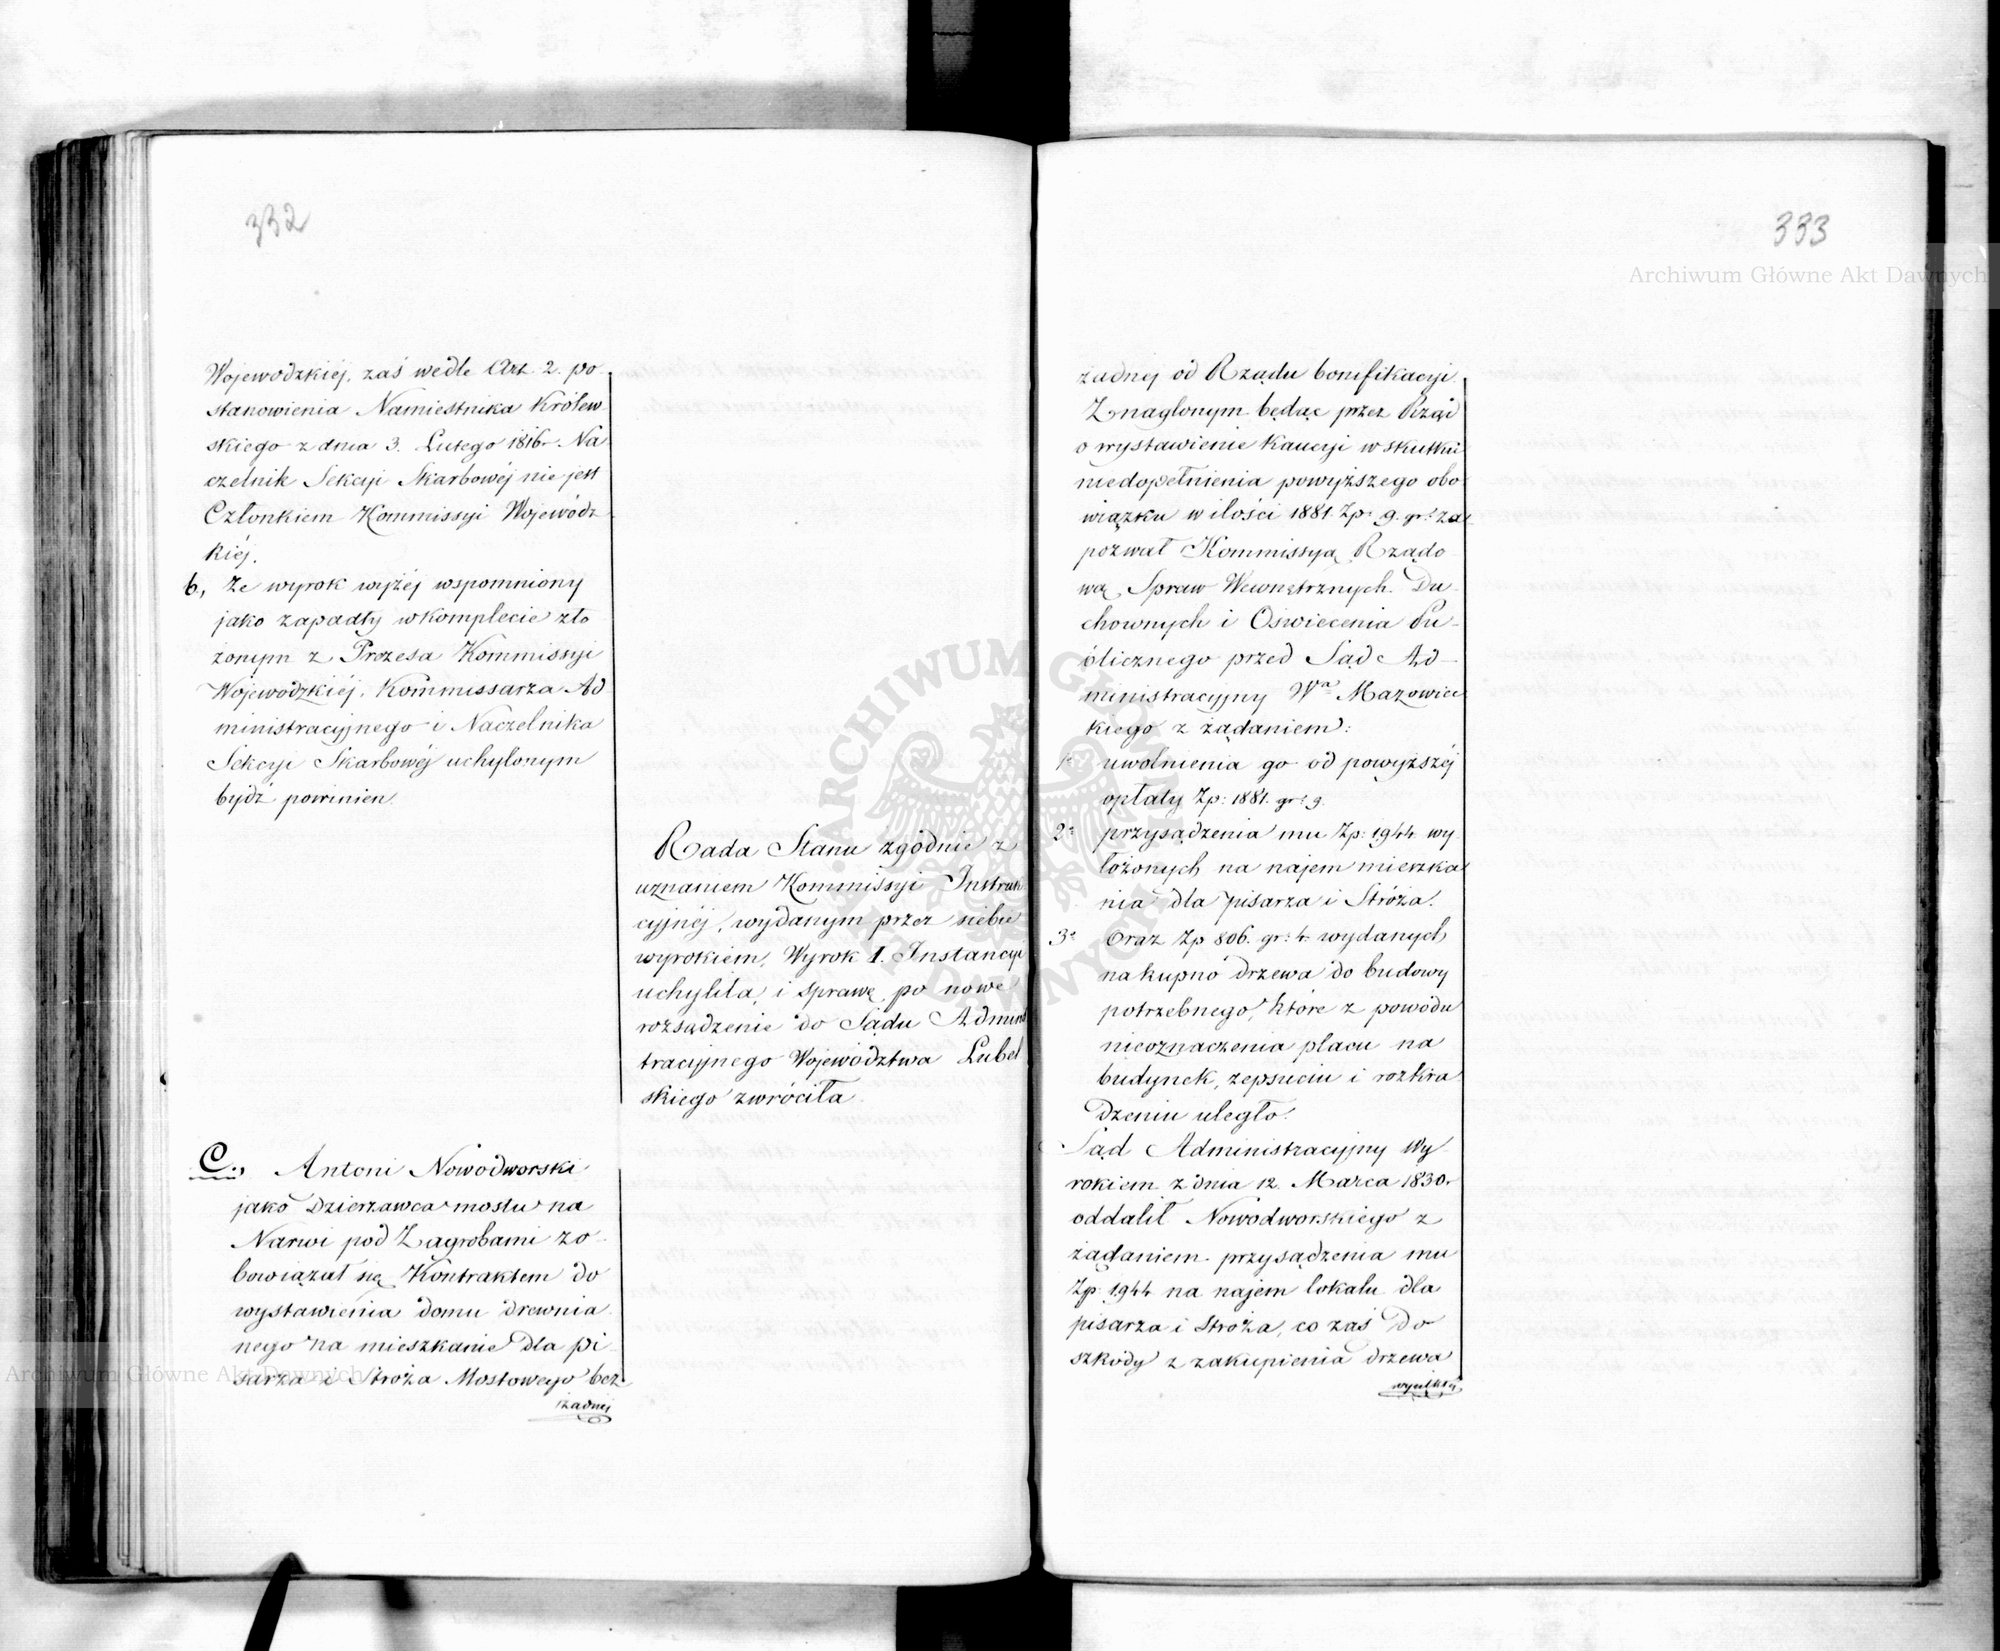 332
Wojewodzkiéj, zaś wedle Art. 2. po-
stanowienia Namiestnika Królew-
skiego z dnia 3. Lutego 1816 r. Na
czelnik Sekcyi Skarbowéj nie jest
Członkiem Kommissyi Wojewódz
kiéj.
b, Że wyrok wyżéj wspomniony
jako zapadły w komplecie zło
żonym z Prezesa Kommissyi
Wojewodzkiéj, Kommissarza Ad
ministracyjnego i Naczelnika
Sekcyi Skarbowéj uchylonym
bydź powinien.
Rada Stanu zgodnie z
uznaniem Kommissyi Instruk
cyjnéj, wydanym przez siebie
wyrokiem, Wyrok I. Instancyi
uchyliła, i sprawę po nowe
rozsądzenie do Sądu Adminis
tracyjnego Województwa Lubel
skiego zwróciła.
C., Antoni Nowodworski
jako Dzierzawca mostu na
Narwi pod Zagrobami zo-
bowiązał się Kontraktem do
wystawienia domu drewnia-
nego na mieszkanie dla pi-
sarza i Stróża Mostowego bez
żadnej
333
żadnej od Rządu bonifikacyi.
Znaglonym będąc przez Rząd
o wystawienie kaucyi w skutku
niedopełnienia powyższego obo-
wiązku w ilości 1881. Zp: 9. gr: za-
pozwał Kommissyą Rządo
wą Spraw Wewnętrznych Du-
chownych i Oświecenia Pu-
blicznego przed Sąd Ad-
ministracyjny Wa Mazowiec
kiego z żądaniem:
1e uwolnienia go od powyższéj
opłaty Zp: 1881. gr: 9.
2e przysądzenia mu Zp: 1944 wy
łożonych na najem mieszka
nia dla pisarza i Stróża.
3e Oraz Zp 806. gr: 4. wydanych
na kupno drzewa do budowy
potrzebnego, które z powodu
nieoznaczenia placu na
budynek, zepsuciu i rozkra
dzeniu uległo.
Sąd Administracyjny Wy-
rokiem z dnia 12. Marca 1830 r.
oddalił Nowodworskiego z
żądaniem przysądzenia mu
Zp: 1944 na najem lokalu dla
pisarza i stróża, co zaś do
szkody z zakupienia drzewa
wynikłéj
Archiwum Główne Akt Dawnych
Archiwum Główne Akt Dawnych
ARCHIWUM GŁÓWNE AKT DAWNYCH